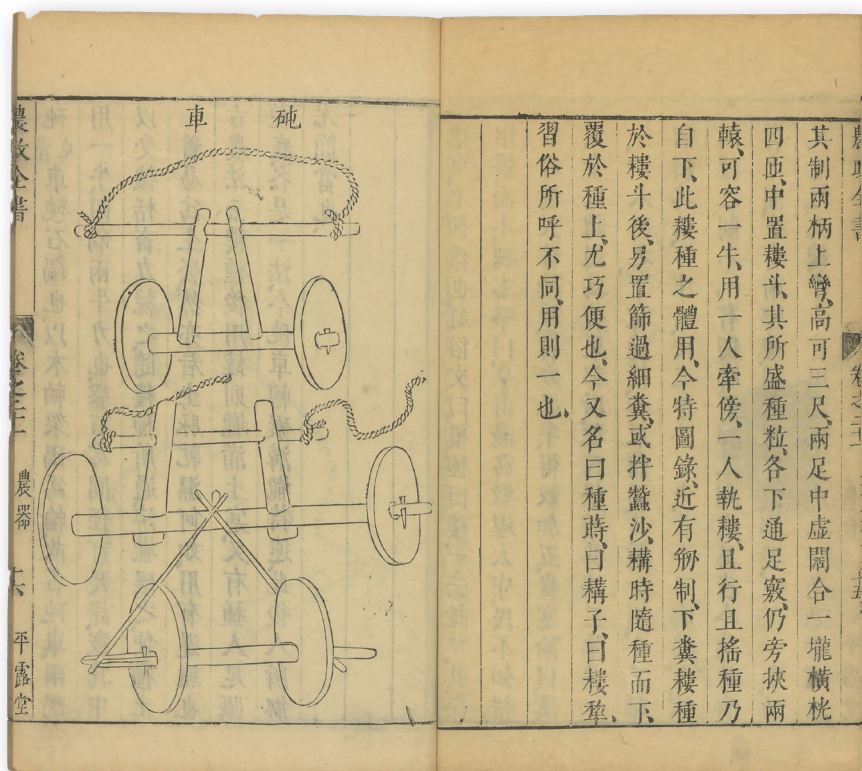 其制兩柄上彎、高可三尺、兩足中虛、闊合一壠、橫桄
四匝、中置耬斗、其所盛種粒、各下通足竅、仍旁挾兩
轅、可容一牛、用一人牽傍、一人執耬、且行且搖、種乃
自下、此耬種之體用、今特圖錄、近有刱制、下糞耬種
於耬斗後、另置篩過細糞、或拌蠶沙、耩時隨種而下、
覆於種上、尤巧便也、今又名曰種蒔、曰耩子、曰耬犂、
習俗所呼不同、用則一也、
砘車
農政全書 卷之二十一 農器 十六 平露堂